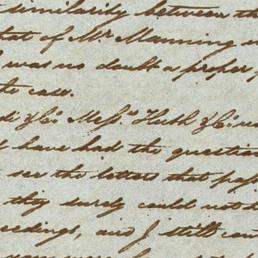 similarity between th
tat of Mr. Manning w
I was no doubt a proper
te case.
di & Co. Messrs. Huth & Co. w
t have had the question
see the letters that pass
they surely could not h
eedings, and I still con